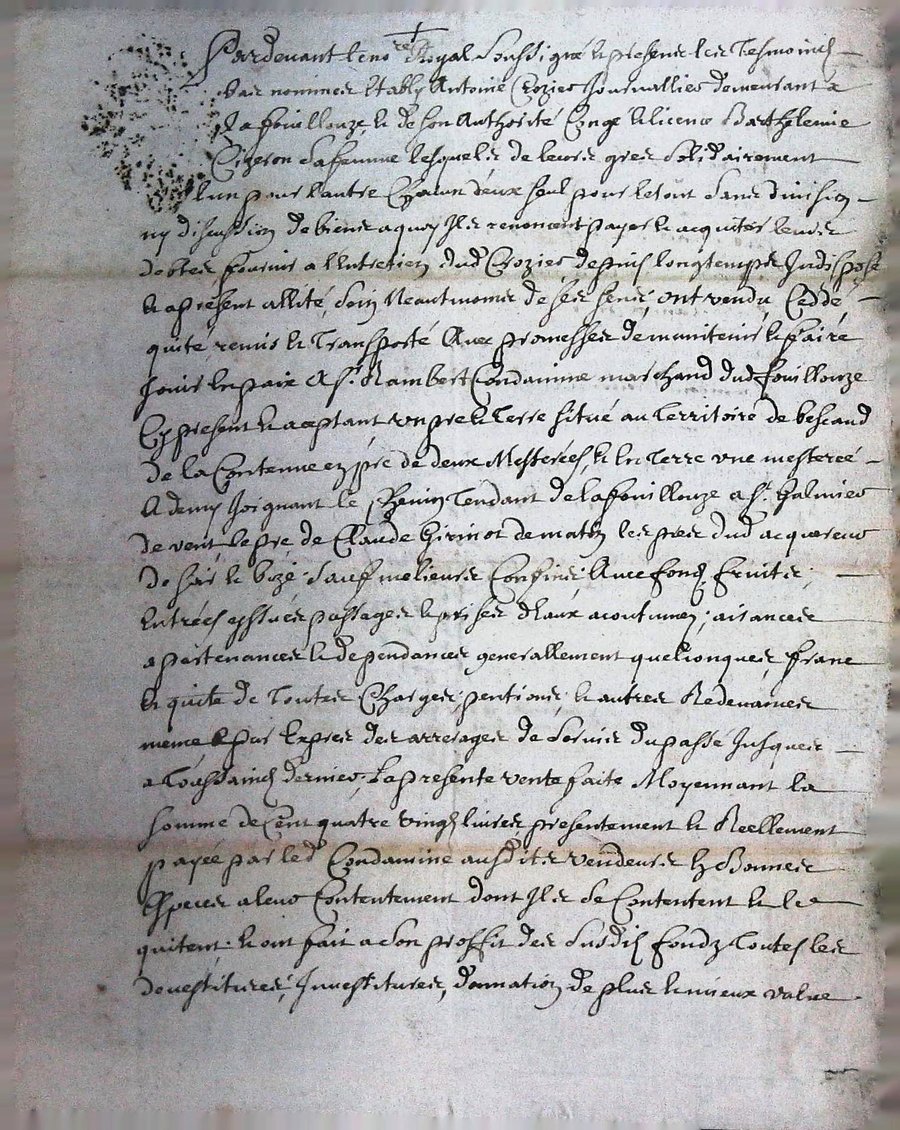 Pardevant le no.re Royal Soussigné & presens les Tesmoins
bas nommes Etably Antoine Crozier Journallier demeurant a
La fouillouze & de son Authorité Conge & licence Barthelemie
Cizeron sa femme lesquels de leurs gres Solidairement
l'un pour l'autre Chacun d'eux seul pour le tout sans division
ny discussion de biens a quoy Ils renoncent payer & acquiter leurs
debtes fournir a l'Entretien dud Crozier depuis longtemps Indispose
& apresent allité, Soin Neautmoins de ses sens, ont vendu Ceddé
quité remis & Transporté Avec promesses de manitenir & faire
Jouir En paix A Sr. Rambert Condamine marchand dud fouillouze
Cy present & aceptant un pre & Terre situé au Territoire de
de la Contenue en pré de deux Mesterées, & En Terre une mesterée
& demy Joignant le Chemin Tendant de la fouillouze a St. Galmier
de vent, Le pré de Claude Girinot de matin les pres dud acquereur
de soir & bize Sauf melieurs Confins, Avec fond, fruits,
Entrées yssues passages & prises d'Eaux acoutumez, aisances
apartenances & dependances generallement quelconques, franc
& quite de Toutes Charges, pentions, & autres Redevances
meme par Expres des arrerages de Servis du passe Jusques
a Toussaincts dernier, La presente vente faite Moyennant la
Somme de Cent quatre vingts livres presentement & Reellement
payée par led Condamine ausdits vendeurs En Bonnes
Especes a leur Contentement dont Ils se Contentent & le
quitent, & ont fait a son proffit des Susdits fondz Toutes les
devestitures, Investitures, donnation de plus & mieux value